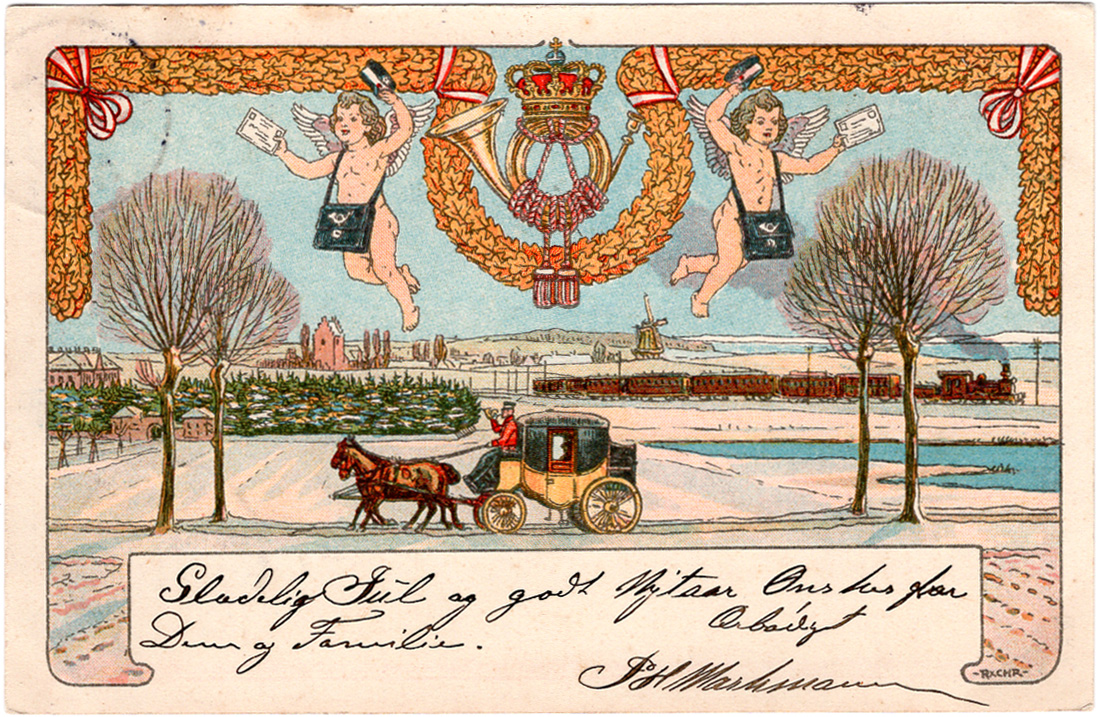 Gladelig Jul og godt Nytaar Onskes fra
Dem og Familie. Ærbødigst
P. H. Markmann
RXCHR